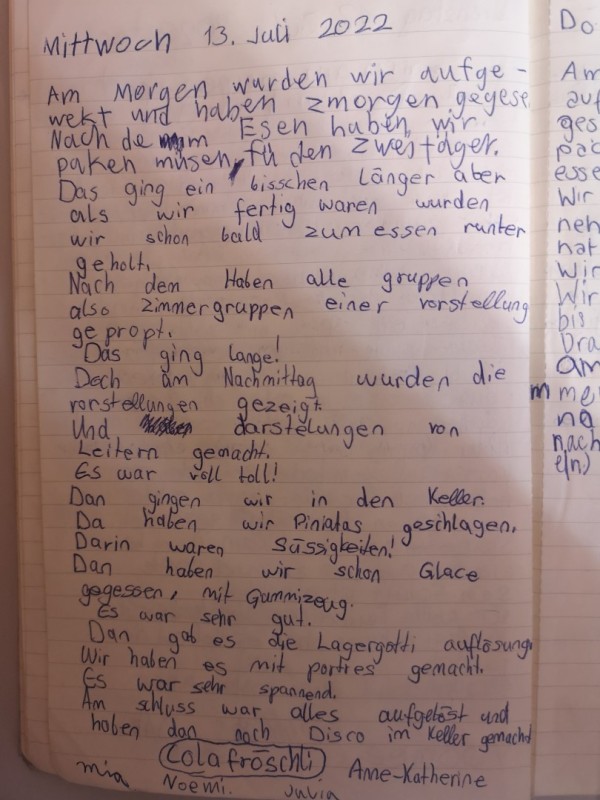 Mittwoch 13. Juli 2022
Am Morgen wurden wir aufge-
wekt und haben zmorgen gegese
Nach dem Esen haben wir
paken müsen, fü den zweitäger.
Das ging ein bisschen länger aber
als wir fertig waren wurden
wir schon bald zum essen runter
geholt.
Nach dem Haben alle gruppen
also Zimmergruppen einer vorstellung
gepropt.
Das ging lange!
Doch am Nachmittag wurden die
vorstellungen gezeigt.
Und darstelungen von
Leitern gemacht.
Es war voll toll!
Dan gingen wir in den Keller.
Da haben wir Piniatas geschlagen.
Darin waren Süssigkeiten!
Dan haben wir schon Glace
gegessen, mit Gummizeug.
Es war sehr gut.
Dan gab es die Lagergotti auflösung.
Wir haben es mit porties gemacht.
Es war sehr spannend.
Am schluss war alles aufgelöst und
haben dan noch Disco im Keller gemacht
Cola fröschli
mia Noemi. Julia Anne-Katherine
Do
Am
auf
ges
pac
esse
Wir
neh
hat
Wir
Wir
bis
bra
am
mme
na
nach
e(n)